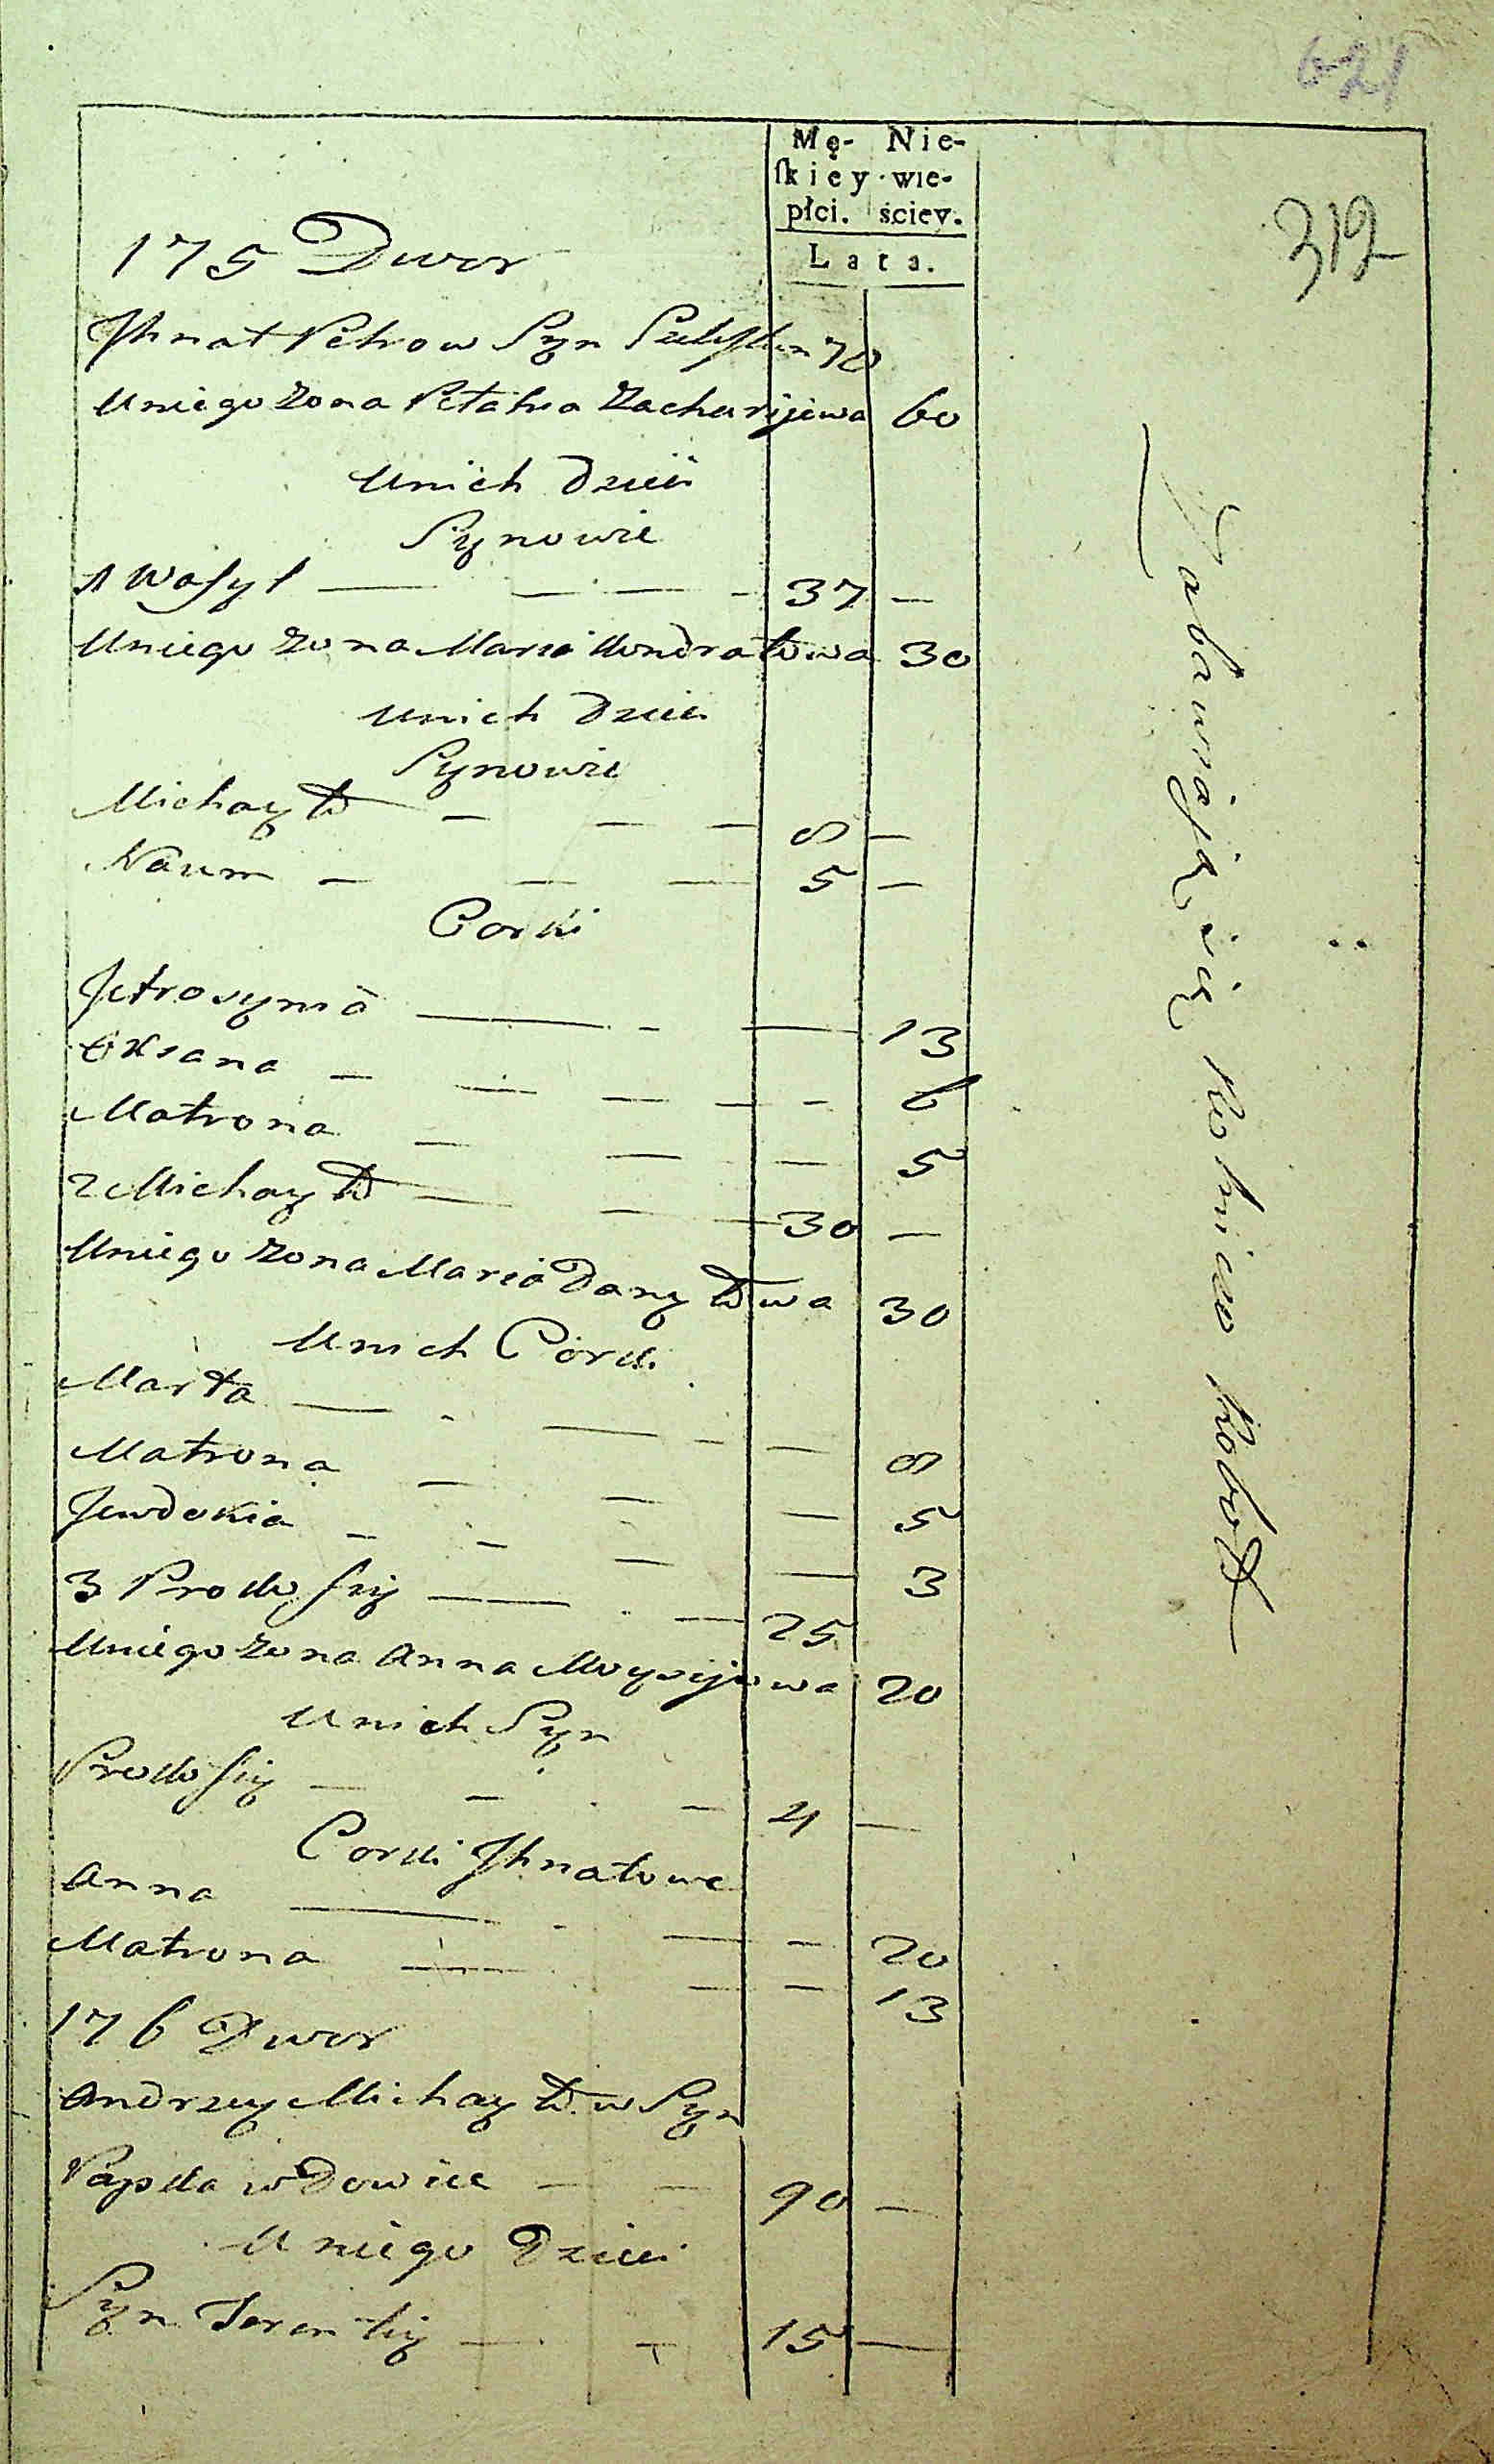 621
312
Mę- Nie-
ſkiey wie-
płci. ściey.
Lata.
175 Dwor
Jhnat Petrow Syn 70
Uniego Zona Pełahia Zacharyjewa 60
Unich Dzieci
Synowie
1 Wasyl — — — - 37 —
Uniego Zona Maria Kondratowa 30
Unich Dzieci
Synowie
Michayło — — — 8 —
Naum — — — 5 —
Corki
Jefrosynia — - — 13
Oxsana — — — — - 6
Matrona — — — 5
2 Michayło — — — 30 —
Uniego Zona Maria Danyłowa 30
Unich Corki
Marta — - — - — 8
Matrona — — — 5
Jewdokia — - — — 3
3 Prokofiy — — 25
Uniego Zona Anna Moysijowa 20
Unich Syn
Prokofiy — — — 4 —
Corki Jhnatowe
Anna — - — — 20
Matrona — — — 13
176 Dwor
Andrzey Michayłow Syn
wdowiec — — 90 —
Uniego Dzieci
Syn Terentiy — - 15 —
Zabawiają się Rolniczo Robotą